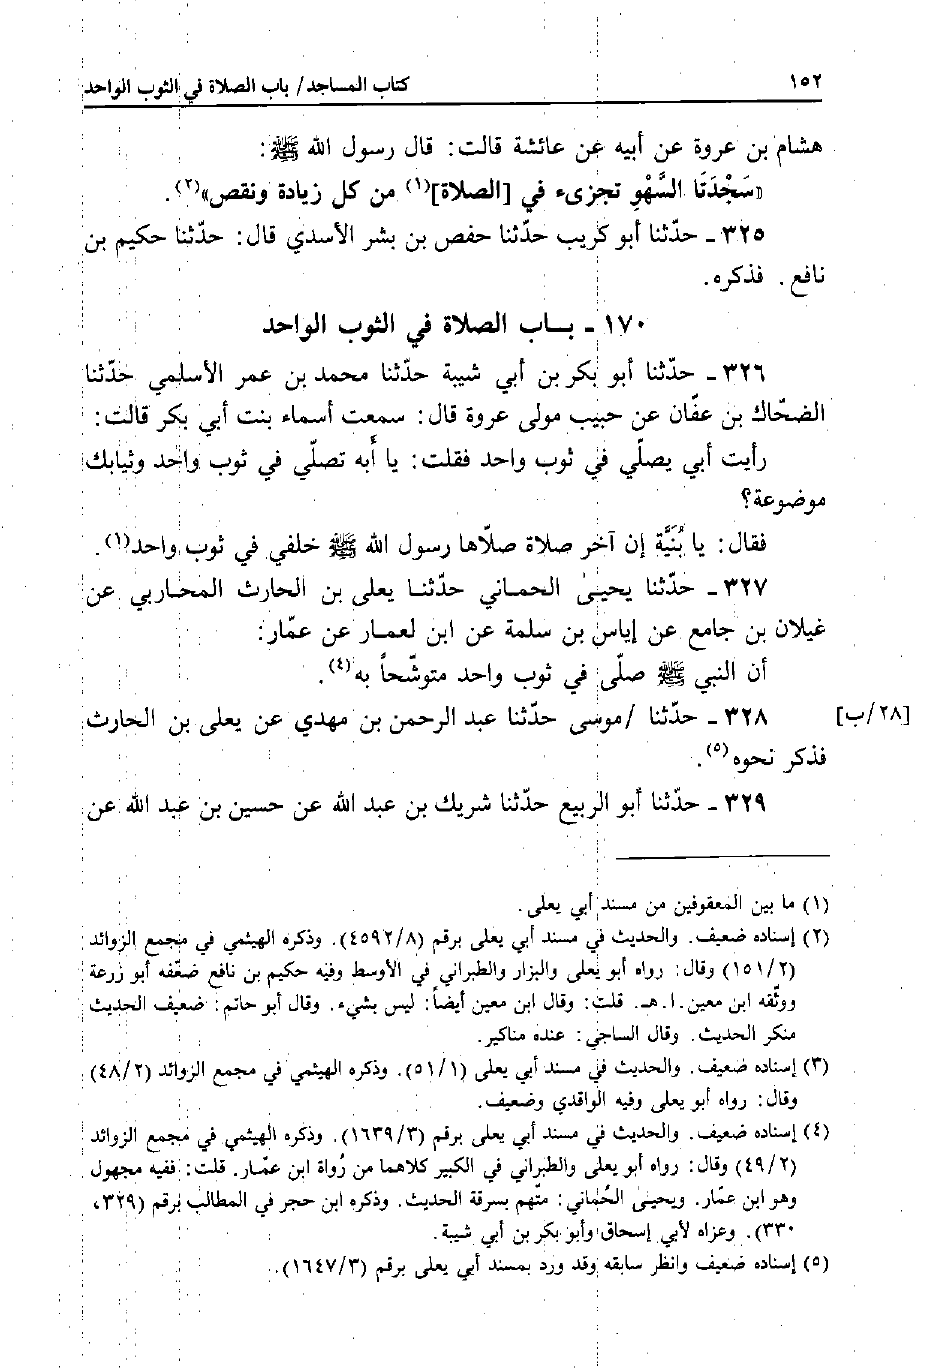 ١٥٢ كتاب المساجد / باب الصلاة في الثوب الواحد
هشام بن عروة عن أبيه عن عائشة قالت: قال رسول الله ﷺ:
«سَجْدَتَا السَّهْوِ تجزىء في [الصلاة](١) من كل زيادة ونقص»(٢).
٣٢٥ ـ حدّثنا أبو كريب حدّثنا حفص بن بشر الأسدي قال: حدّثنا حكيم بن
نافع. فذكره.
١٧٠ ـ بـاب الصلاة في الثوب الواحد
٣٢٦ ـ حدّثنا أبو بكر بن أبي شيبة حدّثنا محمد بن عمر الأسلمي حدّثنا
الضحّاك بن عفّان عن حبيب مولى عروة قال: سمعت أسماء بنت أبي بكر قالت:
رأيت أبي يصلّي في ثوب واحد فقلت: يا أَبه تصلّي في ثوب واحد وثيابك
موضوعة؟
فقال: يا بُنَيَّة إن آخر صلاة صلّاها رسول الله ﷺ خلفي في ثوب واحد(١).
٣٢٧ ـ حدّثنا يحيىٰ الحمـاني حدّثنـا يعلى بن الحارث المحـاربي عن
غيلان بن جامع عن إياس بن سلمة عن ابن لعمـار عن عمّار:
أن النبي ﷺ صلّى في ثوب واحد متوشّحاً به(٤).
٣٢٨ ـ حدّثنا /موسى حدّثنا عبد الرحمن بن مهدي عن يعلى بن الحارث [٢٨/ب]
فذكر نحوه(٥).
٣٢٩ ـ حدّثنا أبو الربيع حدّثنا شريك بن عبد الله عن حسين بن عبد الله عن
(١) ما بين المعقوفين من مسند أبي يعلى.
(٢) إسناده ضعيف. والحديث في مسند أبي يعلى برقم (٤٥٩٢/٨). وذكره الهيثمي في مجمع الزوائد
(١٥١/٢) وقال: رواه أبو يعلى والبزار والطبراني في الأوسط وفيه حكيم بن نافع ضعّفه أبو زرعة
ووثّقه ابن معين. ا. هـ. قلت: وقال ابن معين أيضاً: ليس بشيء. وقال أبو حاتم: ضعيف الحديث
منكر الحديث. وقال الساجي: عنده مناكير.
(٣) إسناده ضعيف. والحديث في مسند أبي يعلى (٥١/١). وذكره الهيثمي في مجمع الزوائد (٤٨/٢)
وقال: رواه أبو يعلى وفيه الواقدي وضعيف.
(٤) إسناده ضعيف. والحديث في مسند أبي يعلى برقم (١٦٣٩/٣). وذكره الهيثمي في مجمع الزوائد
(٤٩/٢) وقال: رواه أبو يعلى والطبراني في الكبير كلاهما من رُواة ابن عمّار. قلت: ففيه مجهول
وهو ابن عمّار. ويحيى الحُماني: متّهم بسرقة الحديث. وذكره ابن حجر في المطالب برقم (٣٢٩،
٣٣٠). وعزاه لأبي إسحاق وأبو بكر بن أبي شيبة.
(٥) إسناده ضعيف وانظر سابقه وقد ورد بمسند أبي يعلى برقم (١٦٤٧/٣).